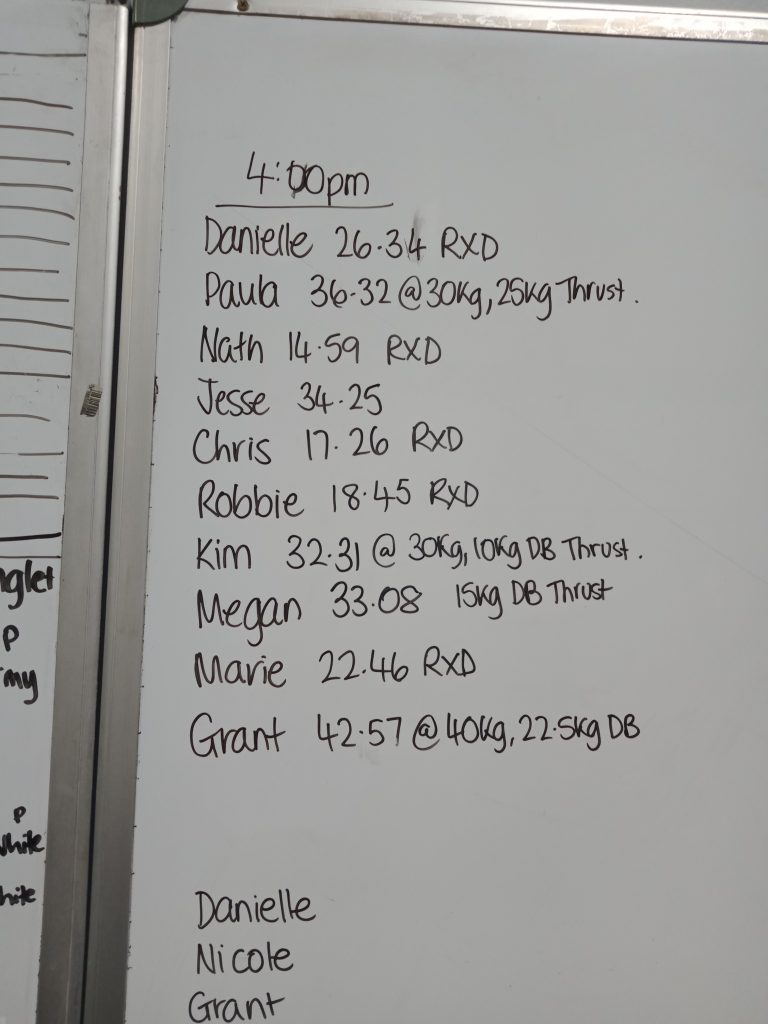 4:00pm
Danielle 26.34 RXD
Paula 36.32 @30kg, 25kg Thrust.
Nath 14.59 RXD
Jesse 34.25
Chris 17.26 RXD
Robbie 18.45 RXD
Kim 32.31 @ 30kg, 10kg DB Thrust.
Megan 33.08 15kg DB Thrust
Marie 22.46 RXD
Grant 42.57 @ 40kg, 22.5kg DB
Danielle
Nicole
Grant
nglet
P
my
P
White
hite